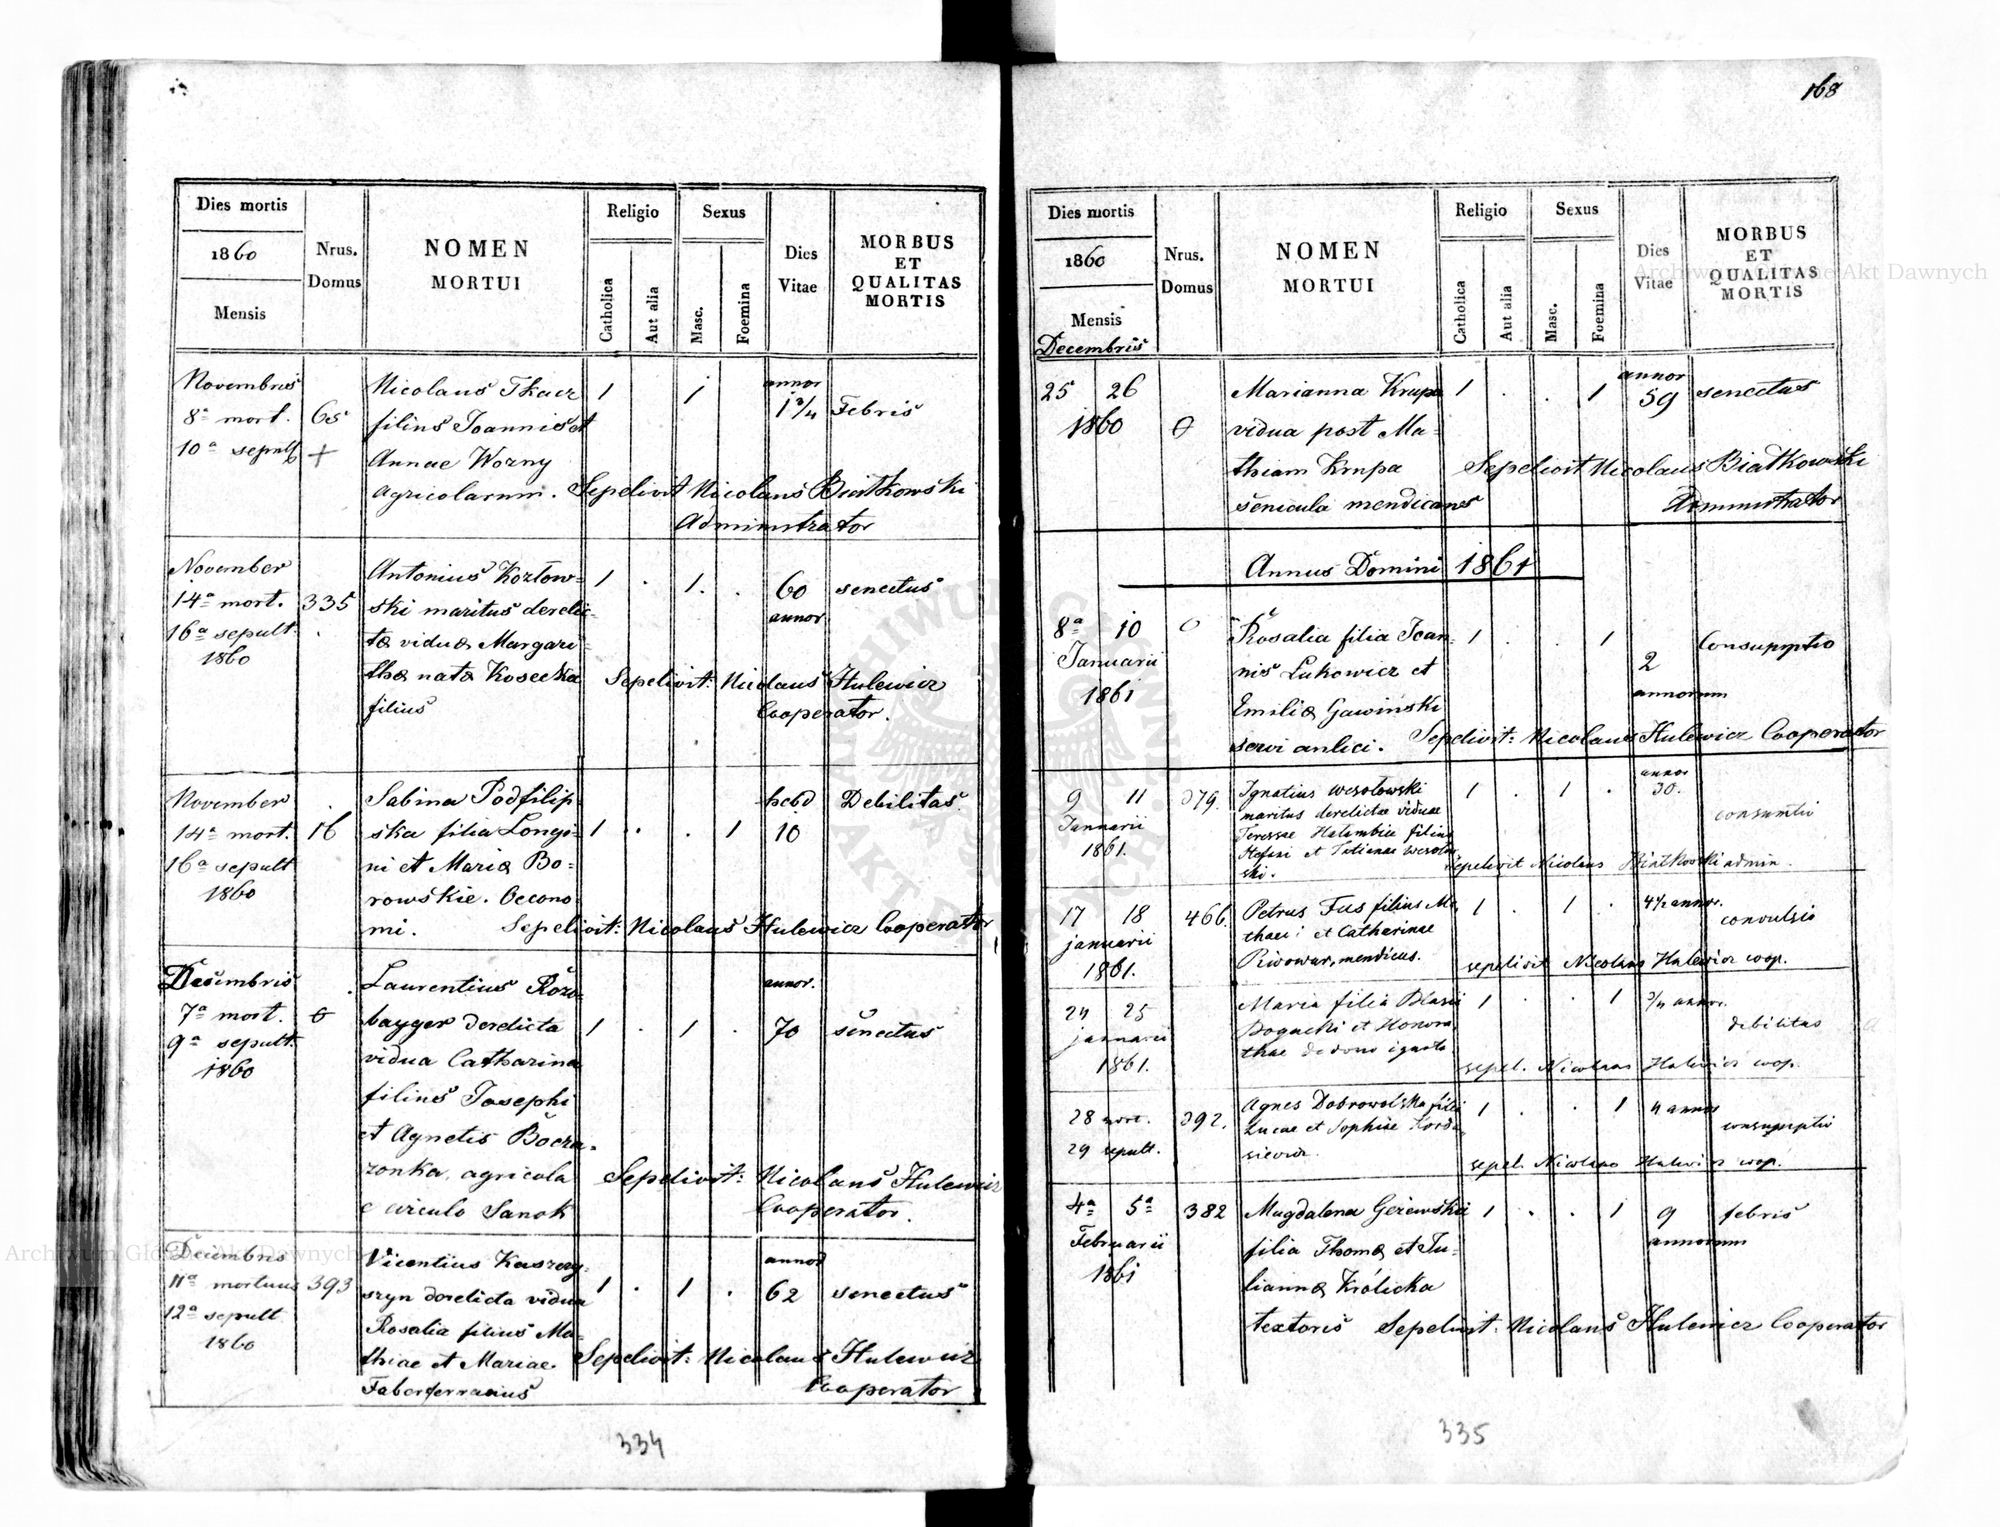 168
Dies mortis
1860
Mensis
Nrus.
Domus
NOMEN
MORTUI
Religio
Catholica
Aut alia
Sexus
Masc.
Foemina
Dies
Vitae
MORBUS
ET
QUALITAS
MORTIS
Novembris
8a mort. 65
10a sepult +
Nicolaus Tkacz
filius Joannis et
Annae Wozny
agricolarum.
1 1
annor
1 3/4 Febris
Sepelivit Nicolaus Białkowski
Administrator
November
14a mort. 335
16a sepult.
1860
Antonius Kozłow=
ski maritus derelic=
tæ viduæ Margari=
thæ natæ Kosecka
filius
1 . 1. .
60
annor
senectus
Sepelivit: Nicolaus Hulewicz
Cooperator.
November
14a mort. 16
16a sepult
1860
Sabina Podfilip=
ska filia Longi=
ni et Mariæ Bo=
rowskie. Oecono
mi.
1 . . 1
hebd
10
Debilitas.
Sepelivit: Nicolaus Hulewicz Cooperator
Decembris
7a mort. 0
9a sepult.
1860
Laurentius Rozo=
bayger derelicta
vidua Catharina
filius Josephi
et Agnetis Bocza=
zonka, agricola
e circulo Sanok
1 . 1 .
annor.
70
senectus
Sepelivit: Nicolaus Hulewicz
Cooperator.
Decembris
11a mortuus 393
12a sepult
1860
Vicentius Kaszczy=
szyn derelicta vidua
Rosalia filius Ma=
thiae et Mariae.
Faberferrarius
1 . 1 .
annor
62 senectus
Sepelivit: Nicolaus Hulewicz
Cooperator
334
Dies mortis
1860
Mensis
Decembris
Nrus.
Domus
NOMEN
MORTUI
Religio
Catholica
Aut alia
Sexus
Masc.
Foemina
Dies
Vitae
MORBUS
ET
QUALITAS
MORTIS
25 26
1860 0
Marianna Krupa
vidua post Ma=
thiam Krupa
senicula mendicans
1 . . 1
annor
59
senectus
Sepelivit Nicolaus Białkowski
Administrator
Annus Domini 1861
8a 10 0
Januarii
1861
Rosalia filia Joan=
nis Lukowicz et
Emiliæ Gawinski
servi aulici.
1 . . 1
2
annorum
Consumptio
Sepelivit: Nicolaus Hulewicz Cooperator
9 11 379.
Januarii
1861.
Ignatius Wesołowski
maritus derelictae viduae
Teressae Hatambica filius
Stefani et Tatianae Wesołow
ski.
1 . 1 .
annor
30.
consumtio
Sepelivit Nicolaus Białkowski admin.
17 18 466.
januarii
1861.
Petrus Fus filius Ma
thaei et Catharinae
Piwowar, mendicus.
1 . 1 .
4 1/2 annor.
convulsio
sepelivit Nicolaus Hulewicz coop.
24 25
januarii
1861.
Maria filia Blasii
Bogucki et Honora
thae de domo ignota
1 . . 1
3/4 annor.
debilitas
sepel. Nicolaus Hulewicz coop.
28 mort. 392.
29 sepult.
Agnes Dobrowolska filia
Lucae et Sophiae Korda
siewicz.
1 . . 1
4 annor
consumptio
sepel. Nicolaus Hulewicz coop.
4a 5a 382
Februarii
1861
Magdalena Gerewska
filia Thomæ et Ju=
liannæ Królicka
textoris
1 . . 1
9
annorum
febris
Sepelivit: Nicolaus Hulewicz Cooperator
335
Archiwum Główne Akt Dawnych